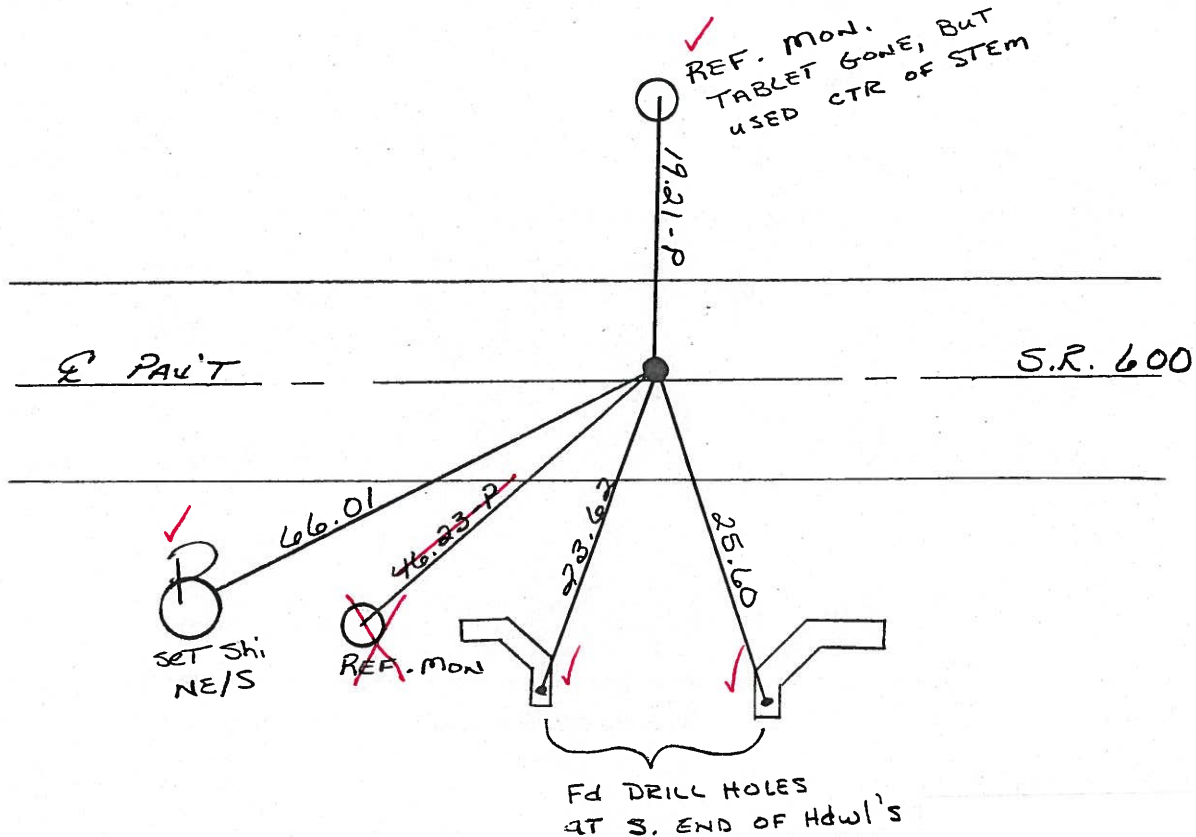 REF. MON.
TABLET GONE, BUT
USED CTR OF STEM
19.21-P
℄ PAV'T
S.R. 600
66.01
46.23-P
23.62
25.60
P
SET Shi
NE/S
REF. MON
Fd DRILL HOLES
AT S. END OF Hdwl's